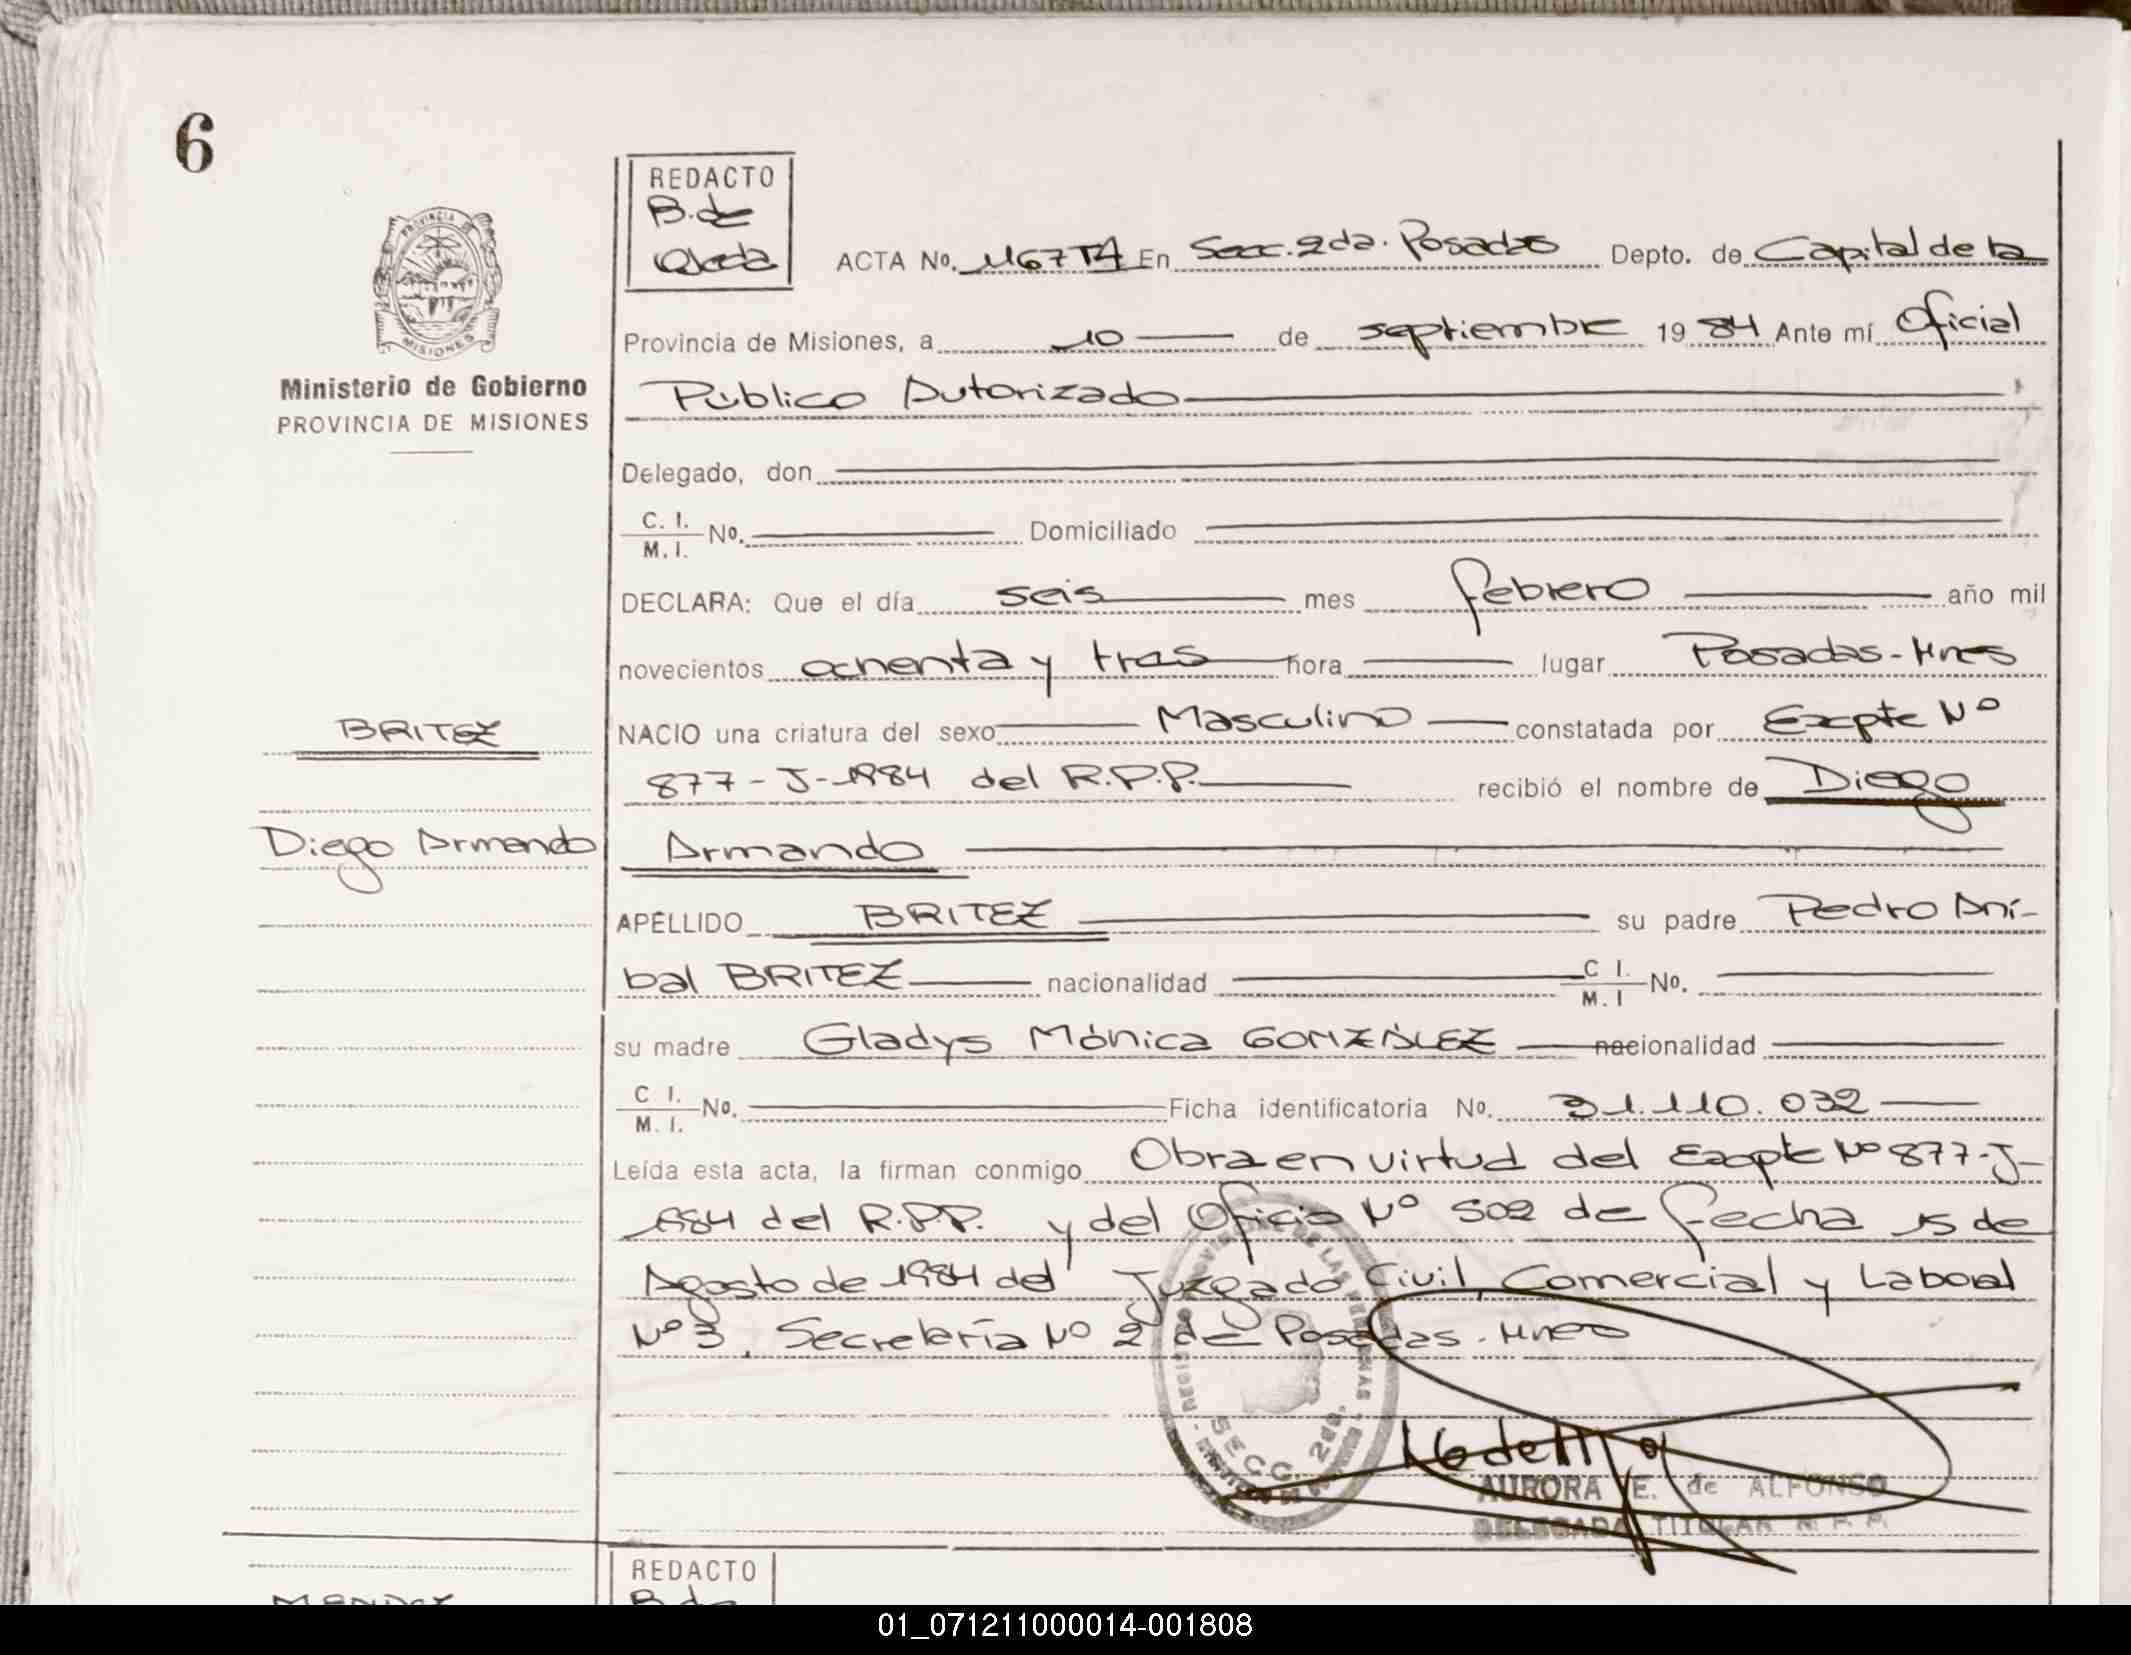 6
REDACTO
B. de
Ojeda
PROVINCIA DE
MISIONES
Ministerio de Gobierno
PROVINCIA DE MISIONES
ACTA No. 1167 T4 En Secc. 2da. Posadas Depto. de Capital de la
Provincia de Misiones, a 10 de septiembre 1984 Ante mí Oficial
Público Autorizado
Delegado, don
C. I.
M. I. No. Domiciliado
DECLARA: Que el día seis mes febrero año mil
novecientos ochenta y tres hora lugar Posadas - Mnes
BRITEZ
NACIO una criatura del sexo Masculino constatada por Expte Nº
877 - J - 1984 del R.P.P. recibió el nombre de Diego
Diego Armando
Armando
APELLIDO BRITEZ su padre Pedro Aní-
bal BRITEZ nacionalidad C I. M. I No.
su madre Gladys Mónica GONZÁLEZ nacionalidad
C I. M. I. No. Ficha identificatoria No. 31.110.032
Leída esta acta, la firman conmigo Obra en virtud del Expte Nº 877 - J -
1984 del R.P.P. y del Oficio Nº 502 de fecha 15 de
Agosto de 1984 del Juzgado Civil, Comercial y Laboral
Nº 3, Secretaría Nº 2 de Posadas. Mnes
SECC. 2da.
AURORA E. de ALFONSO
DELEGADA TITULAR R. P. P.
REDACTO
B. de
MENDEZ
01_071211000014-001808